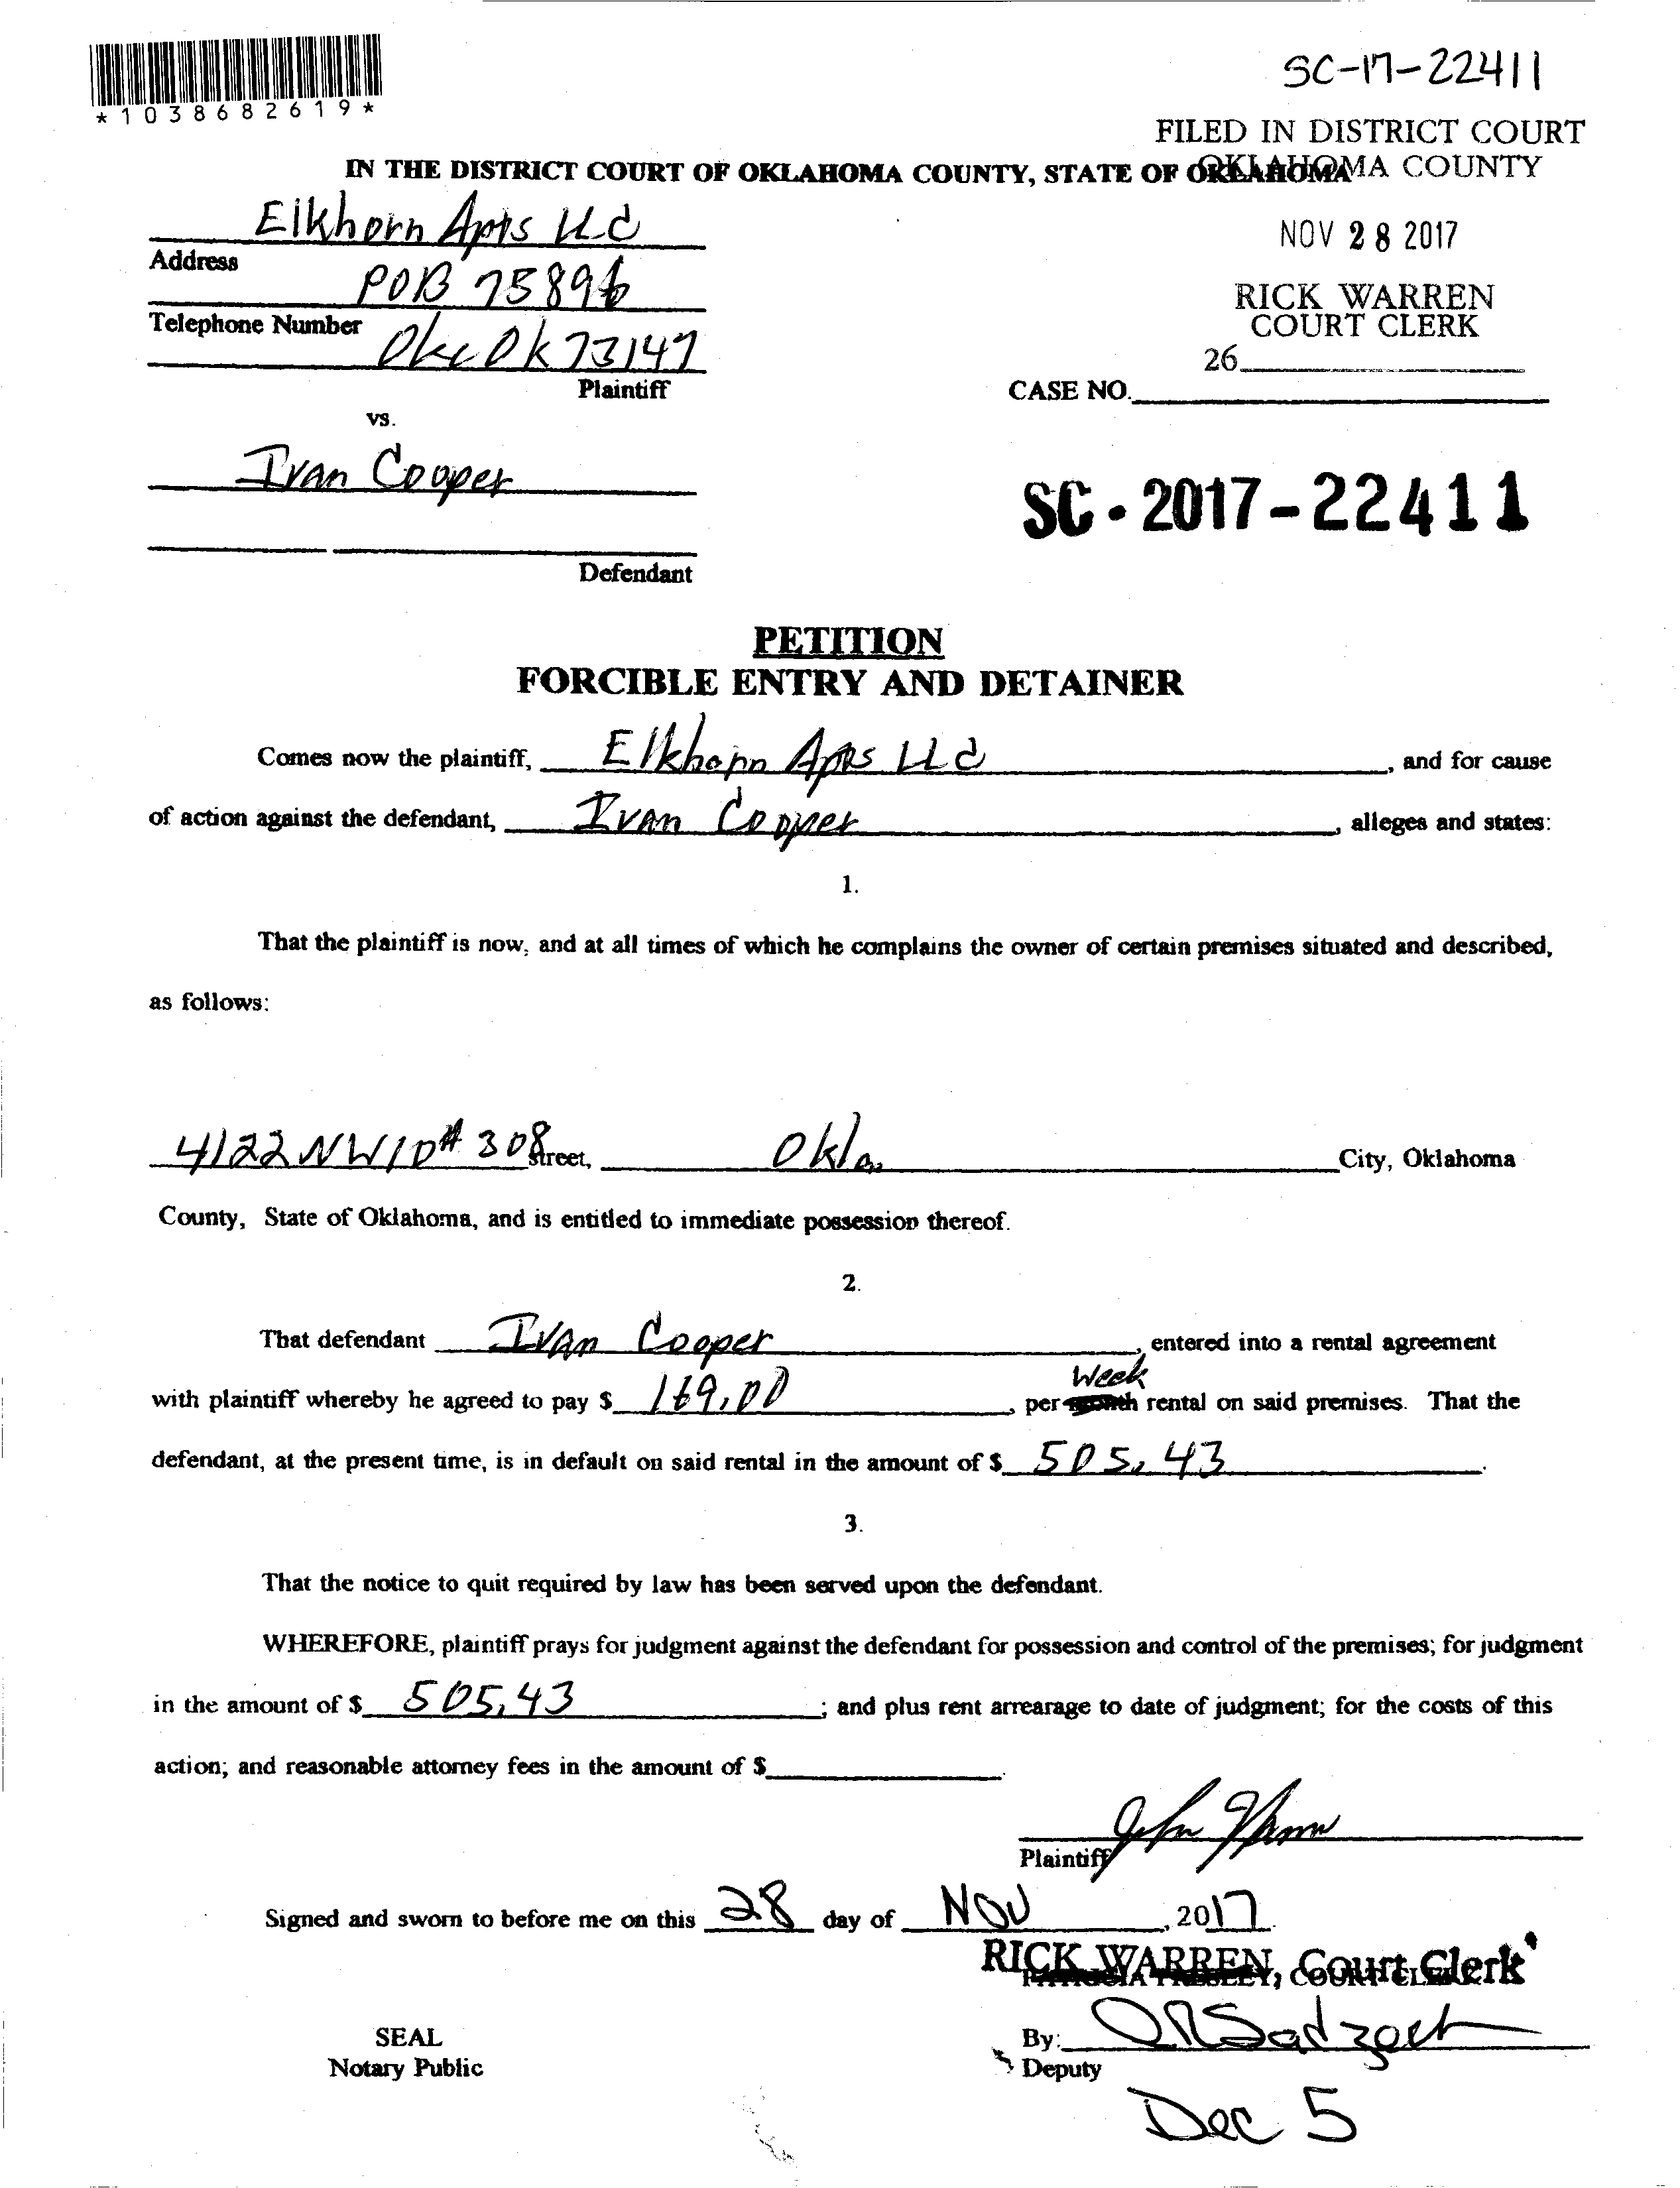 *1038682619*
SC-17-22411
FILED IN DISTRICT COURT
OKLAHOMA COUNTY
IN THE DISTRICT COURT OF OKLAHOMA COUNTY, STATE OF OKLAHOMA
Elkhorn Apts LLC
NOV 28 2017
Address
POB 75896
RICK WARREN
COURT CLERK
Telephone Number
Okc Ok 73147
26
Plaintiff
CASE NO.
vs.
Ivan Cooper
SC-2017-22411
Defendant
PETITION
FORCIBLE ENTRY AND DETAINER
Comes now the plaintiff, Elkhorn Apts LLC, and for cause
of action against the defendant, Ivan Cooper, alleges and states:
1.
That the plaintiff is now, and at all times of which he complains the owner of certain premises situated and described,
as follows:
4122 NW 10 # 308 Street, Okla. City, Oklahoma
County, State of Oklahoma, and is entitled to immediate possession thereof.
2.
That defendant Ivan Cooper, entered into a rental agreement
Week
with plaintiff whereby he agreed to pay $ 169.00, per month rental on said premises. That the
defendant, at the present time, is in default on said rental in the amount of $ 505.43.
3.
That the notice to quit required by law has been served upon the defendant.
WHEREFORE, plaintiff prays for judgment against the defendant for possession and control of the premises; for judgment
in the amount of $ 505.43; and plus rent arrearage to date of judgment; for the costs of this
action; and reasonable attorney fees in the amount of $
Plaintiff
Signed and sworn to before me on this 28 day of Nov, 2017.
RICK WARREN, Court Clerk
PATRICIA PRESLEY, COURT CLERK
SEAL
By:
Notary Public
Deputy
Dec 5